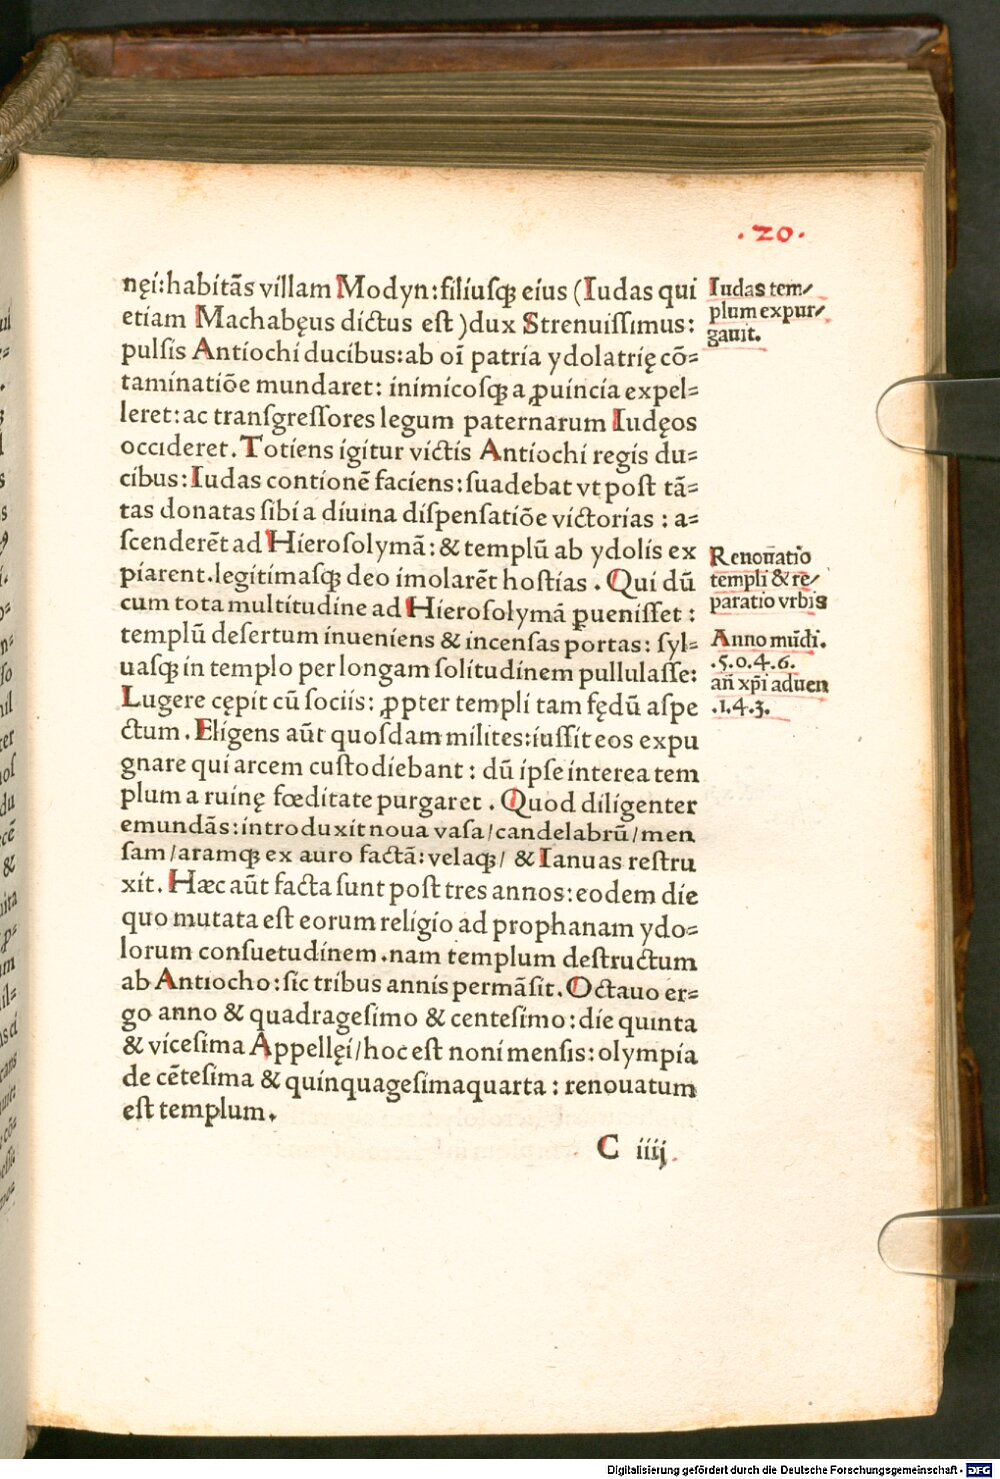 ·20·
nęi:habitãs villam Modyn:filiuſqꝫ eius (Iudas qui
etiam Machabęus dictus eſt )dux Strenuiſſimus:
pulſis Antiochi ducibus:ab oĩ patria ydolatrię cõ=
taminatiõe mundaret: inimicoſqꝫ a ꝓuincia expel=
leret:ac tranſgreſſores legum paternarum Iudęos
occideret. Totiens igitur victis Antiochi regis du=
cibus: Iudas contionẽ faciens:ſuadebat vt poſt tã=
tas donatas ſibi a diuina diſpenſatiõe victorias : a=
ſcenderẽt ad Hieroſolymã: & templũ ab ydolis ex
piarent.legitimaſqꝫ deo imolarẽt hoſtias . Qui dũ
cum tota multitudine ad Hieroſolymã ꝑueniſſet :
templũ deſertum inueniens & incenſas portas: ſyl=
uaſqꝫ in templo per longam ſolitudinem pullulaſſe:
Lugere cępit cũ ſociis: ꝓpter templi tam fędũ aſpe
ctum . Eligens aũt quoſdam milites:iuſſit eos expu
gnare qui arcem cuſtodiebant : dũ ipſe interea tem
plum a ruinę fœditate purgaret . Quod diligenter
emundãs:introduxit noua vaſa/candelabrũ/men
ſam/aramqꝫ ex auro factã: velaqꝫ/ & Ianuas reſtru
xit. Hæc aũt facta ſunt poſt tres annos:eodem die
quo mutata eſt eorum religio ad prophanam ydo=
lorum conſuetudinem .nam templum deſtructum
ab Antiocho:ſic tribus annis permãſit. Octauo er=
go anno & quadrageſimo & centeſimo: die quinta
& viceſima Appellęi/hoc eſt noni menſis: olympia
de cẽteſima & quinquageſimaquarta : renouatum
eſt templum.
C iiij
Iudas tem/
plum expur/
gauit.
Renouatio
templi & re/
paratio vrbis
Anno mũdi.
.5.0.4.6.
añ xp̃i aduen
.1.4.3.
Digitalisierung gefördert durch die Deutsche Forschungsgemeinschaft - DFG